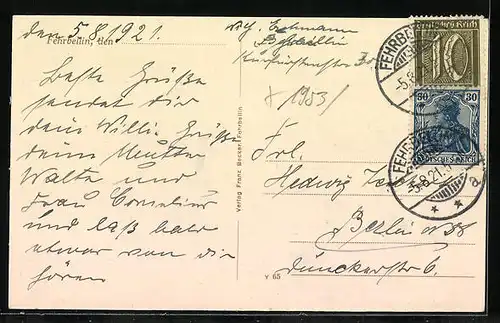 den 5.8.1921.
Fehrbellin, den
Beste Grüße
sendet dir
dein Willi. Grüße
deine Mutter
Walter und
Frau Cornelius
und laß bald
etwas von dir
hören
Verlag Franz Becker, Fehrbellin
Fehrbellin
* 1953/
Deutsches Reich
10
30 30
DEUTSCHES REICH
FEHRBELLIN
5.8.21
* * a
Frl.
Hedwig
Berlin
Dunckerstr 6.
V 65